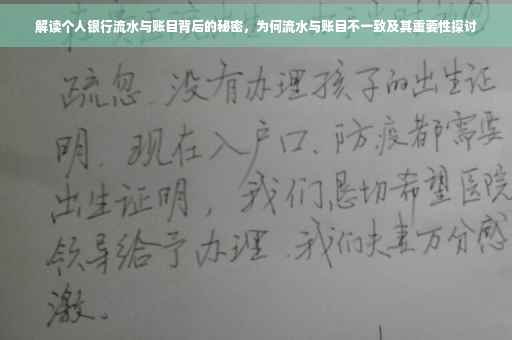 解读个人银行流水与账目背后的秘密，为何流水与账目不一致及其重要性探讨
疏忽、没有办理孩子的出生证
明、现在入户口、防疫都需要
出生证明，我们恳切希望医院
领导给予办理、我们夫妻万分感
激。